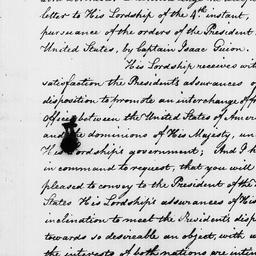 letter to His Lordship of the 4th instant,
pursuance of the orders of the President
United States, by Captain Isaac Guion.
His Lordship receives wit
satisfaction the President's assurances o
disposition to promote an interchange of fr
Offices between the United States of Amer
and the dominions of His Majesty, un
His Lordship's government; And I h
in command to request, that you will
pleased to convey to the President of the
States His Lordship's assurances of His
inclination to meet the President's disp
towards so desireable an object, with w
the interests of both nations are inten